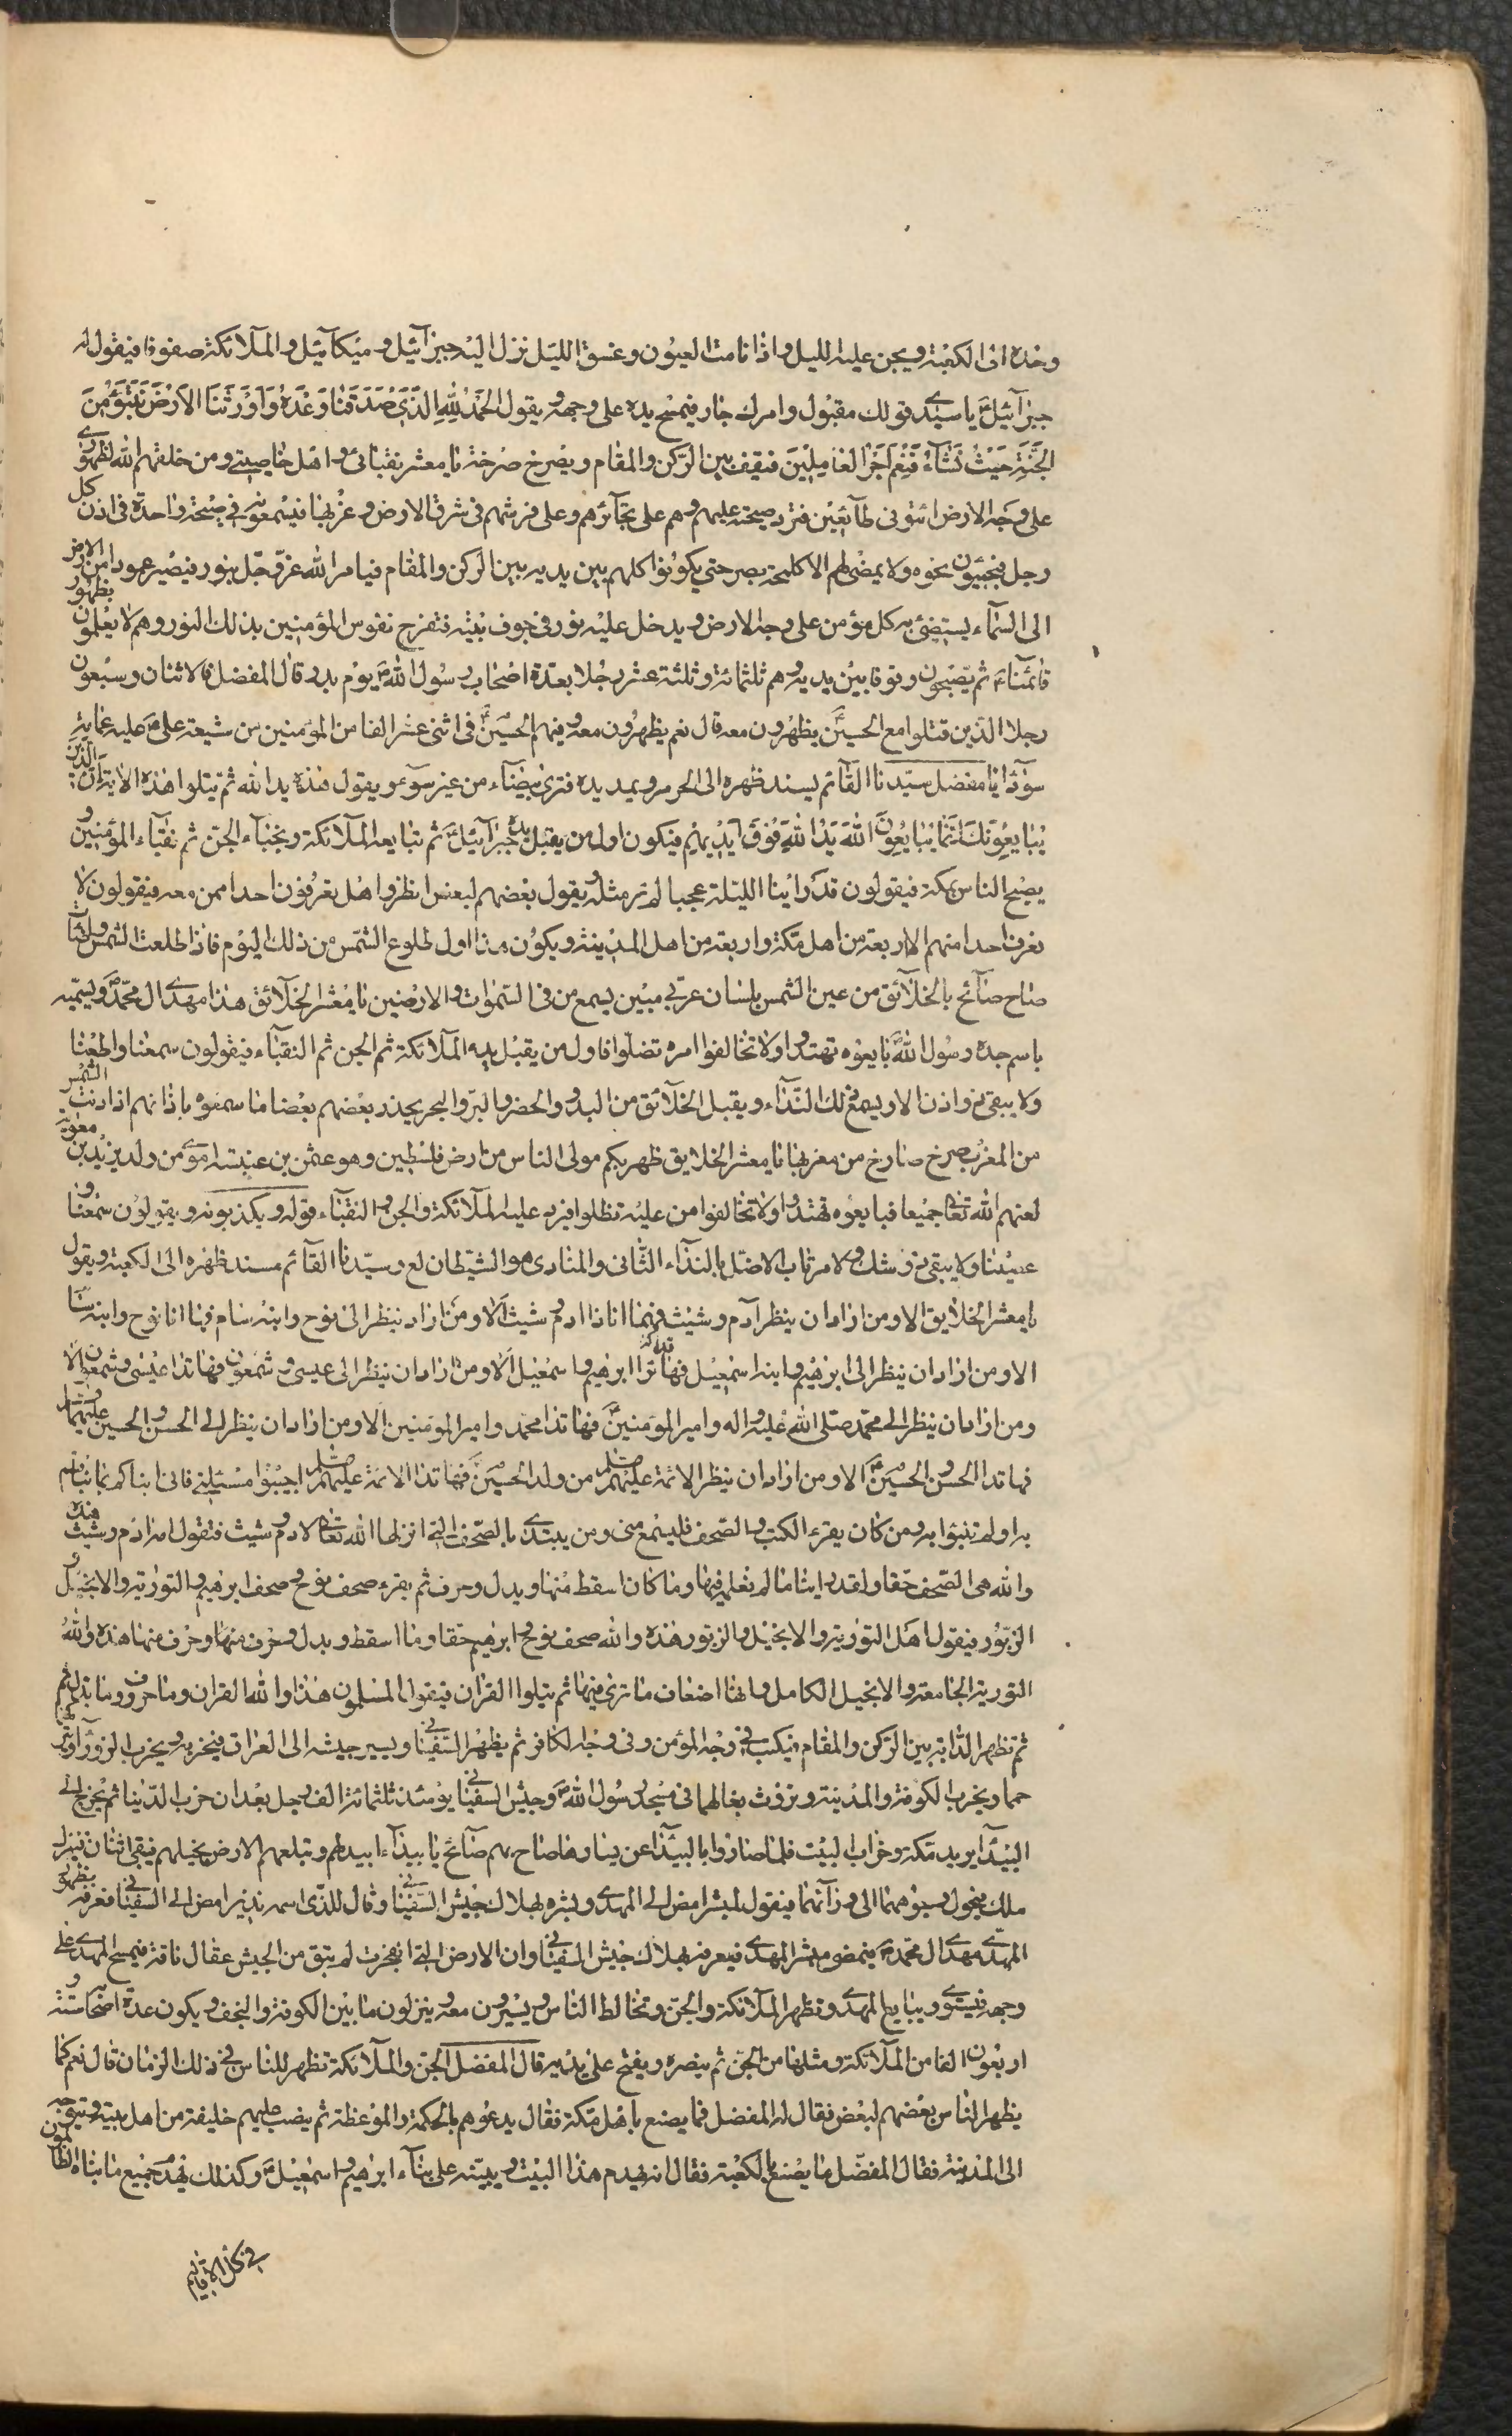 وحده اتى الكعبة ويجن عليه الليل واذا نامت العيون وغسق الليل نزل اليه جبرآئيل وميكآئيل والملآئكة صفوفا فيقول له
جبرآئيل ع يا سيدى قولك مقبول وامرك جار فيمسح يده على وجهه ويقول الحمد لله الذى صدقنا وعده واورثنا الارض نتبوء من
الجنة حيث نشآء فنعم اجر العاملين فيقف بين الركن والمقام ويصرخ صرخة يا معشر نقبائى واهل خاصيتى ومن خلقهم الله لظهورى
على وجه الارض ائتونى طآئعين فترد صيحته عليهم وهم على تجآئرهم وعلى فرشهم فى شرق الارض وغربها فيسمعونه فى صيحة واحدة فى اذن كل
رجل فيجيئون نحوه ولا يمضى لهم الا كلمحة بصر حتى يكونوا كلهم بين يديه بين الركن والمقام فيامر الله عز وجل بنور فيصير عمودا من الارض
الى السمآء يستضئ به كل مؤمن على وجه الارض ويدخل عليه نور فى جوف بيته فتفرح نفوس المؤمنين بذلك النور وهم لا يعلمون بظهور
قائمنا ع ثم يصبحون وقوفا بين يديه وهم ثلثمائة وثلثة عشر رجلا بعدة اصحاب رسول الله ص يوم بدر قال المفضل فالاثنان وسبعون
رجلا الذين قتلوا مع الحسين ع يظهرون معه قال نعم يظهرون معه وفيهم الحسين ع فى اثنى عشر الفا من المؤمنين من شيعة على ع عليه عمامة
سودآ يا مفضل سيدنا القآئم يسند ظهره الى الحرم ويمد يده فترى بيضآء من غير سوء ويقول هذه يد الله ثم يتلوا هذه الاية ان الذين
يبايعونك انما يبايعون الله يد الله فوق ايديهم فيكون اول من يقبل يده جبرآئيل ع ثم يبايعه الملآئكة ونجبآء الجن ثم نقبآء المؤمنين و
يصبح الناس بمكة فيقولون قد راينا الليلة عجبا لم نر مثله ويقول بعضهم لبعض انظروا هل تعرفون احدا ممن معه فيقولون لا
نعرف احدا منهم الا اربعة من اهل مكة واربعة من اهل المدينة ويكون هذا اول طلوع الشمس من ذلك اليوم فاذا طلعت الشمس واضآت
صاح صآئح بالخلآئق من عين الشمس بلسان عربى مبين يسمع من فى السموات والارضين يا معشر الخلآئق هذا مهدى ال محمد ص ويسميه
باسم جده رسول الله ص بايعوه تهتدوا ولا تخالفوا امره تضلوا فاول من يقبل يده الملآئكة ثم الجن ثم النقبآء فيقولون سمعنا واطعنا
ولا يبقى ذو اذن الا ويسمع ذلك الندآء ويقبل الخلآئق من البدو والحضر والبر والبحر يحدث بعضهم بعضا ما سمعوه باذانهم اذا دنت الشمس
من المغرب صرخ صارخ من مغربها يا معشر الخلايق ظهر ربكم مولى الناس من ارض فلسطين وهو عثمن بن عنبسة اموى من ولد يزيد بن معوية
لعنهم الله تعا جميعا فبايعوه تهتدوا ولا تخالفوا من عليه تظلوا فيرد عليه الملآئكة والجن والنقبآء قوله ويكذبونه ويقولون سمعنا و
عصينا ولا يبقى ذو شك ولا مرتاب الا ضل بالندآء الثانى والمنادى هو الشيطان لع وسيدنا القآئم مسند ظهره الى الكعبة ويقول
يا معشر الخلايق الا ومن اراد ان ينظر آدم وشيث فها انا ذا ادم وشيث الا ومن اراد ينظر الى نوح وابنه سام فها انا نوح وابنه سام
الا ومن اراد ان ينظر الى ابرهيم وابنه اسمعيل فهاتذا ابرهيم واسمعيل الا ومن اراد ان ينظر الى عيسى وشمعون فهاتذا عيسى وشمعون الا
ومن اراد ان ينظر الى محمد صلى الله عليه واله وامير المؤمنين ع فهاتذا محمد وامير المؤمنين الا ومن اراد ان ينظر الى الحسن والحسين عليهما
فهاتذا الحسن والحسين ع الا ومن اراد ان ينظر الائمة عليهم من ولد الحسين ع فهاتذا الائمة عليهم اجيبوا مسئلتى فانى انباكم بما نبئتم
به اولم تنبؤا به ومن كان يقرء الكتب والصحف فليسمع منى ومن يبتدى بالصحف التى انزلها الله تعا لادم وشيث فتقول امة ادم وشيث هذه
والله هى الصحف حقا ولقد اراينا ما لم نعلم فيها وما كان اسقط منها وبدل وحرف ثم يقرء صحف نوح وصحف ابرهيم والتورية والانجيل و
الزبور فيقول اهل التورية والانجيل والزبور هذه والله صحف نوح وابرهيم حقا وما اسقط وبدل وحرف منها وحرف منها هذه والله
التورية الجامعة والانجيل الكامل وانها اضعاف ما نرى فيها ثم يتلوا القران فيقول المسلمون هذا والله القران وما حرف وما بدل ثم
ثم تظهر الدابة بين الركن والمقام فيكتب فى وجه المؤمن وفى وجه الكافر ثم يظهر السفيانى ويسير جيشه الى العراق فيخربه ويخرب الزورآ ويتركها
حما ويخرب الكوفة والمدينة وتروث بغالهما فى مسجد رسول الله ص وجيش السفيانى يومئذ ثلثمائة الف رجل بعد ان خرب الدنيا ثم يخرج الى
البيدآ يريد مكة وخراب البيت فلما صاروا بالبيدآ عن يسارها صاح بهم صآئح يا بيدآء ابيدهم وتبلعهم الارض بخيلهم فيبقى اثنان فينزل
ملك فيحول وجوههما الى ورآئهما فيقول للبشر امض الى المهدى وبشره بهلاك جيش السفيانى وقال للذى اسمه نذير امض الى السفيانى فعرفه بظهور
المهدى مهدى ال محمد ص فيمضى مبشر المهدى فيعرفه بهلاك جيش السفيانى وان الارض التى انفجرت لم تبق من الجيش عقال ناقة فيمسح المهدى على
وجهه فيستوى ويبايع المهدى وتظهر الملآئكة والجن وتخالط الناس ويسيرون معه وينزلون ما بين الكوفة والنجف ويكون عدة اصحابه ستة و
اربعون الفا من الملآئكة ومثلها من الجن ثم ينصره ويفتح على يديه قال المفضل الجن والملآئكة تظهر للناس فى ذلك الزمان قال نعم كما
يظهر الناس بعضهم لبعض فقال له المفضل فما يصنع باهل مكة فقال يدعوهم بالحكمة والموعظة ثم ينصب عليهم خليفة من اهل بيته ويتوجه
الى المدينة فقال المفضل ما يصنع بالكعبة فقال انه يهدم هذا البيت ويبينه على بنآء ابرهيم واسمعيل ع وكذلك يهدم جميع ما بناه الظالمون
فى كل الاقاليم